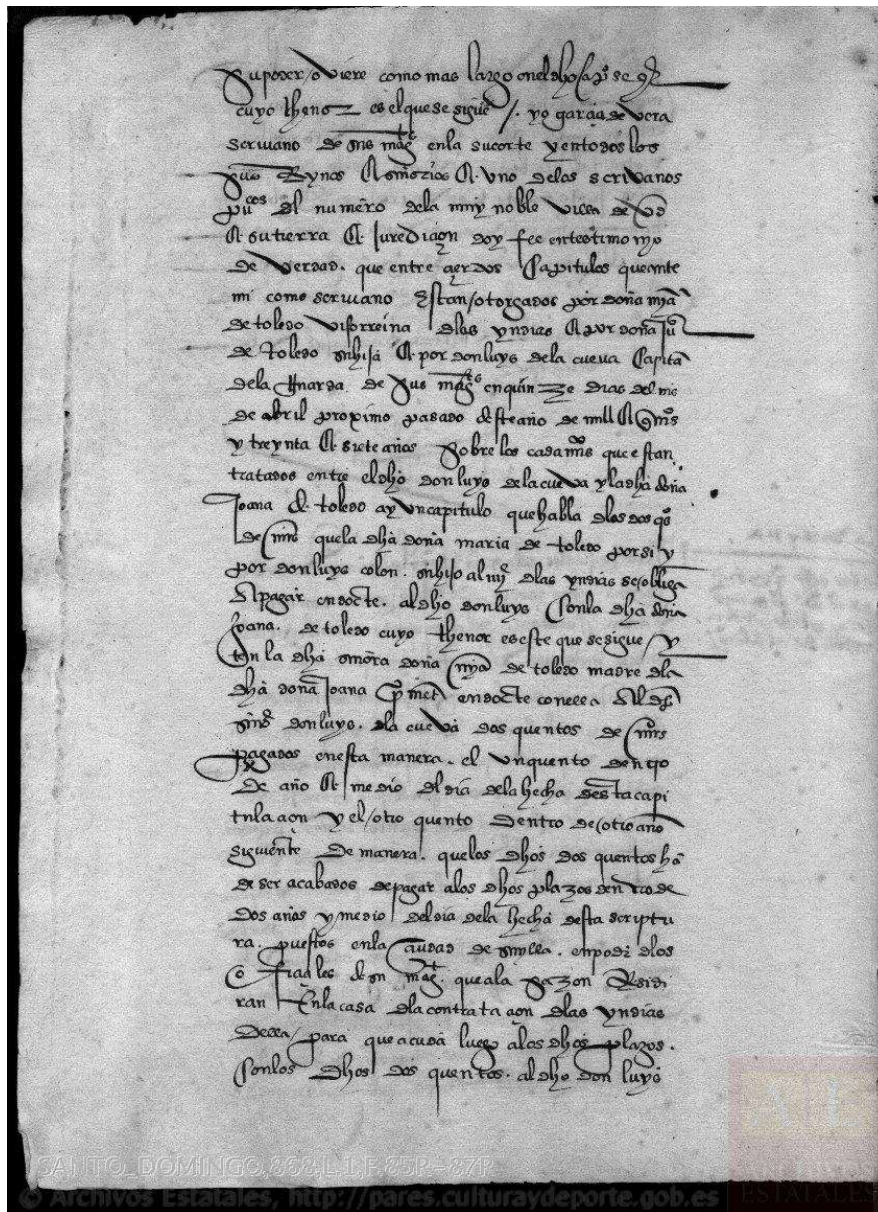 su poder / o viere como mas largo en el dho capº se qe
cuyo thenor es el que se sigue /. yo garcia de vera
scrivano de sus magt en la su corte y en todos los
sus Reynos E señorios E uno de los scrivanos
pucos del numero de la muy noble villa de vd
E su tierra E juredicion doy fee en testimonyo
de verdad. que entre çiertos capitulos que ante
mi como scrivano estan / otorgados por doña mja
de toledo visorreina dlas yndias E por doña juª
de toledo su hija E por don luys de la cueva capita
de la guarda de sus mags en quinze dias del mes
de abril proximo pasado deste año de mill E qujos
y treynta E siete años sobre los casamjos que estan
tratados entre el dho don luys de la cueva y la dha doña
Joana de toledo ay un capitulo que habla dlos dos qos
de mrs que la dha doña maria de toledo por si y
por don luys colon. su hijo almje dlas yndias se / obliga
A pagar en docte. al dho don luys con la dha doña
Joana. de toledo cuyo thenor es este que se sigue / y
ten la dha señora doña mja de toledo madre dla
dha doña Joana pmete en docte con ella Al dho
señor don luys. dla cueva dos quentos de mrs
pagados en esta manera. el un quento dentro
de año E medio del dia de la hecha desta capi
tulaçion y el / otro quento dentro de / otro año
siguiente De manera. que los dhos dos quentos hã
de ser acabados de pagar a los dhos plazos dentro de
dos años y medio del dia de la hecha desta scriptu
ra. puestos en la ciudad de sevilla. en poder dlos
ofiçiales de su magt. que a la sazon Residi
ran En la casa dla contrataçion dlas yndias
della / para que acuda luego a los dhos plazos.
con los dhos dos quentos. al dho don luys
SANTO_DOMINGO,868,L.1,F.85R-87R
© Archivos Estatales, http://pares.culturaydeporte.gob.es
ESTATALES